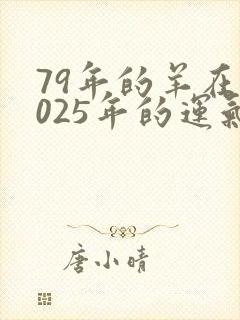 79年的羊在
025年的運氣
唐小晴